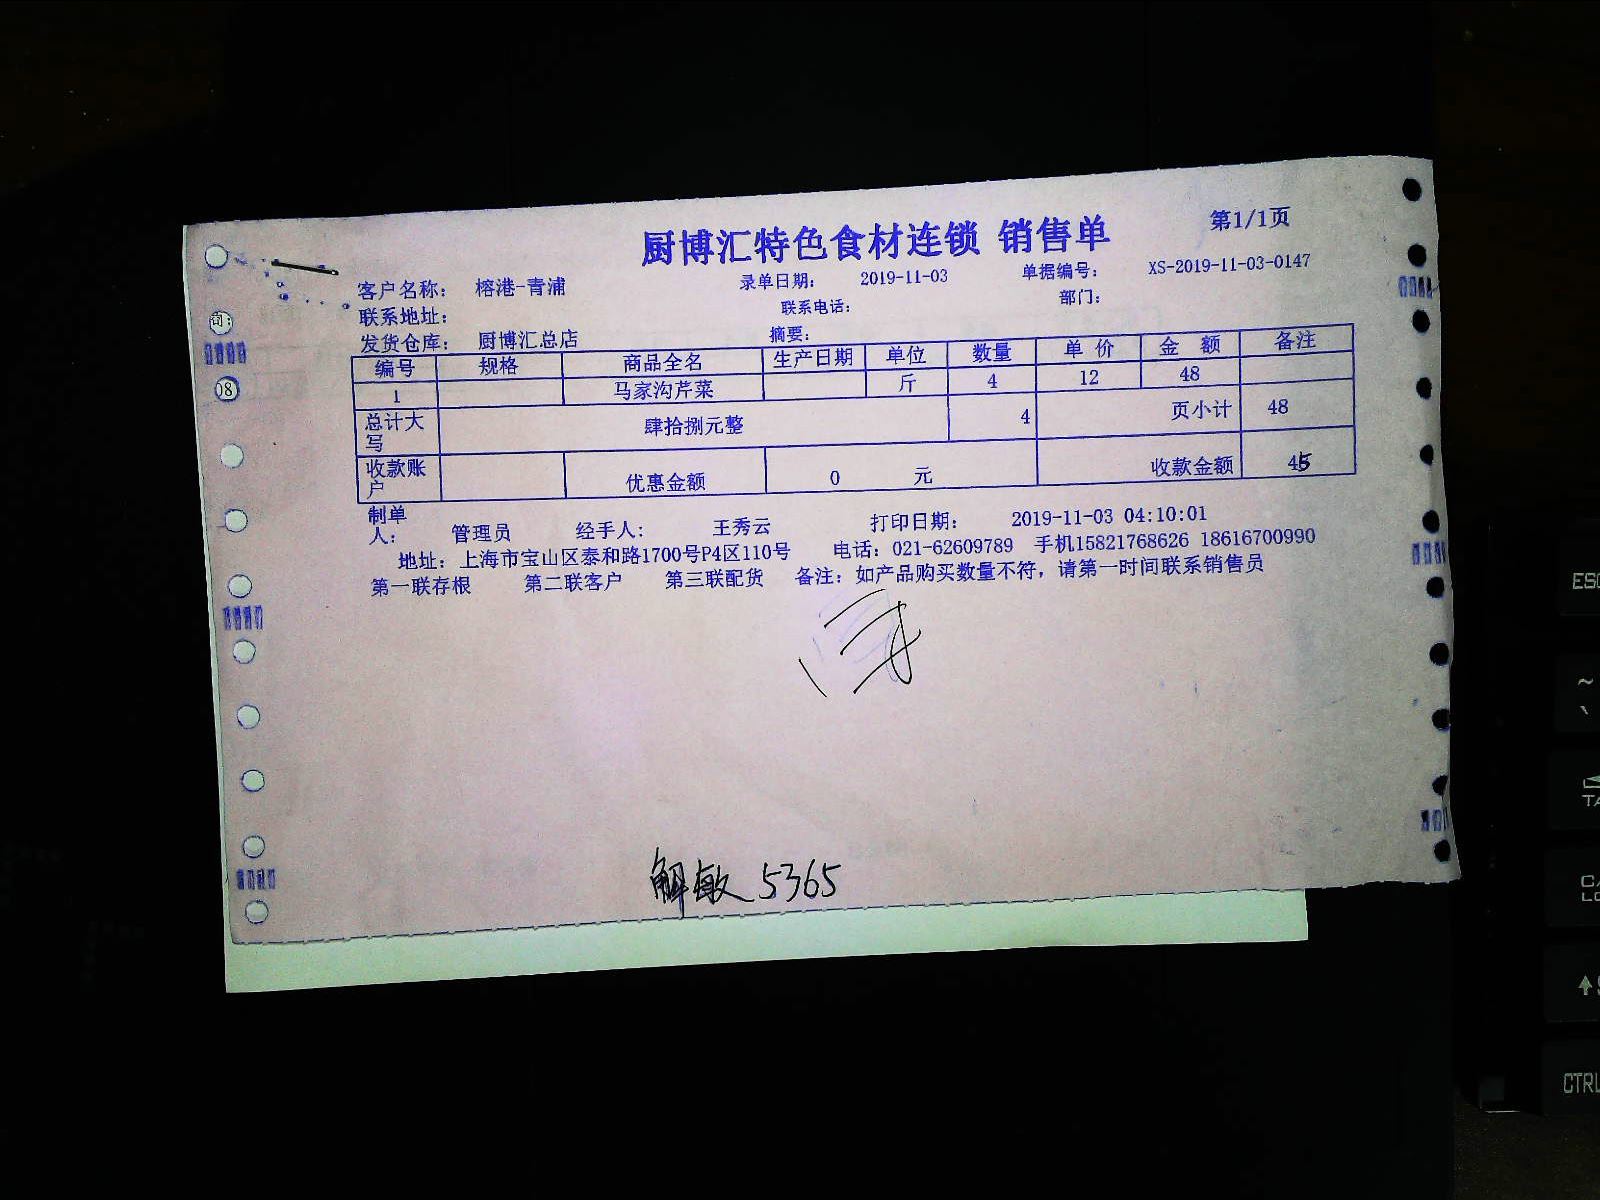 厨博汇特色食材连锁 销售单 第1/1页
客户名称： 榕港-青浦 录单日期： 2019-11-03 单据编号： XS-2019-11-03-0147
联系地址： 联系电话： 部门：
发货仓库： 厨博汇总店 摘要：
编号 规格 商品全名 生产日期 单位 数量 单 价 金 额 备注
1 马家沟芹菜 斤 4 12 48
总计大写 肆拾捌元整 4 页小计 48
收款账户 优惠金额 0 元 收款金额 45
制单人： 管理员 经手人： 王秀云 打印日期： 2019-11-03 04:10:01
地址：上海市宝山区泰和路1700号P4区110号 电话：021-62609789 手机15821768626 18616700990
第一联存根 第二联客户 第三联配货 备注：如产品购买数量不符，请第一时间联系销售员
解敏 5365
司：
08
ESC
~
TA
CA
LO
CTRL